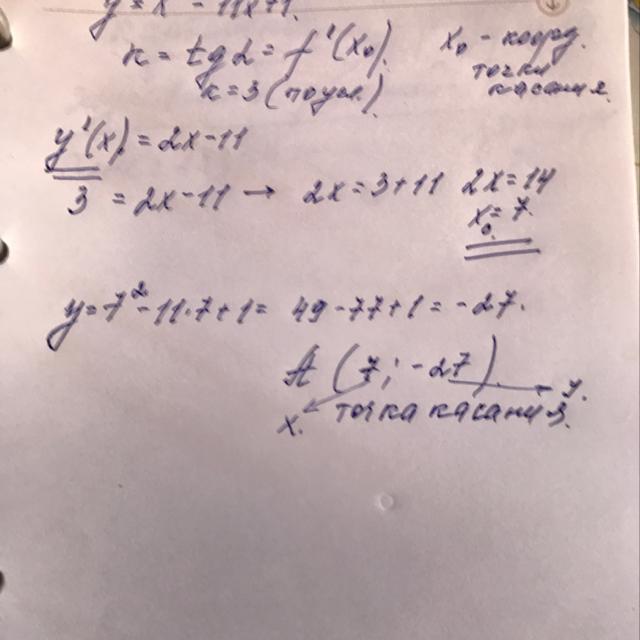 y = x² - 11x + 1.
к = tg α = f'(x₀). x₀ - коорд.
точки
к = 3 (по усл.) касания.
y'(x) = 2x - 11
3 = 2x - 11 → 2x = 3 + 11 2x = 14
x₀ = 7.
y = 7² - 11·7 + 1 = 49 - 77 + 1 = -27.
A (7; -27) y.
x. точка касания.